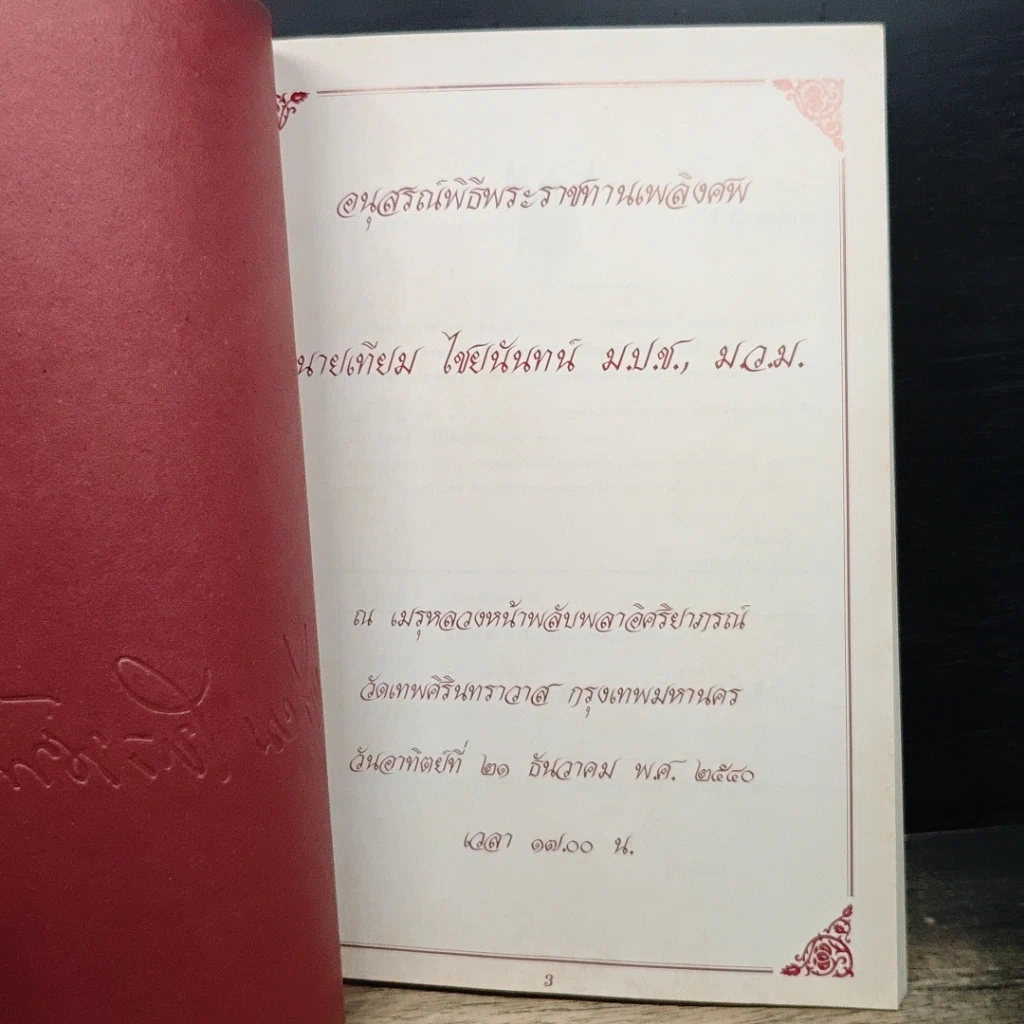 อนุสรณ์พิธีพระราชทานเพลิงศพ
นายเทียม ไชยนันทน์ ม.ป.ช., ม.ว.ม.
ณ เมรุหลวงหน้าพลับพลาอิศริยาภรณ์
วัดเทพศิรินทราวาส กรุงเทพมหานคร
วันอาทิตย์ที่ ๒๑ ธันวาคม พ.ศ. ๒๕๔๐
เวลา ๑๗.๐๐ น.
3